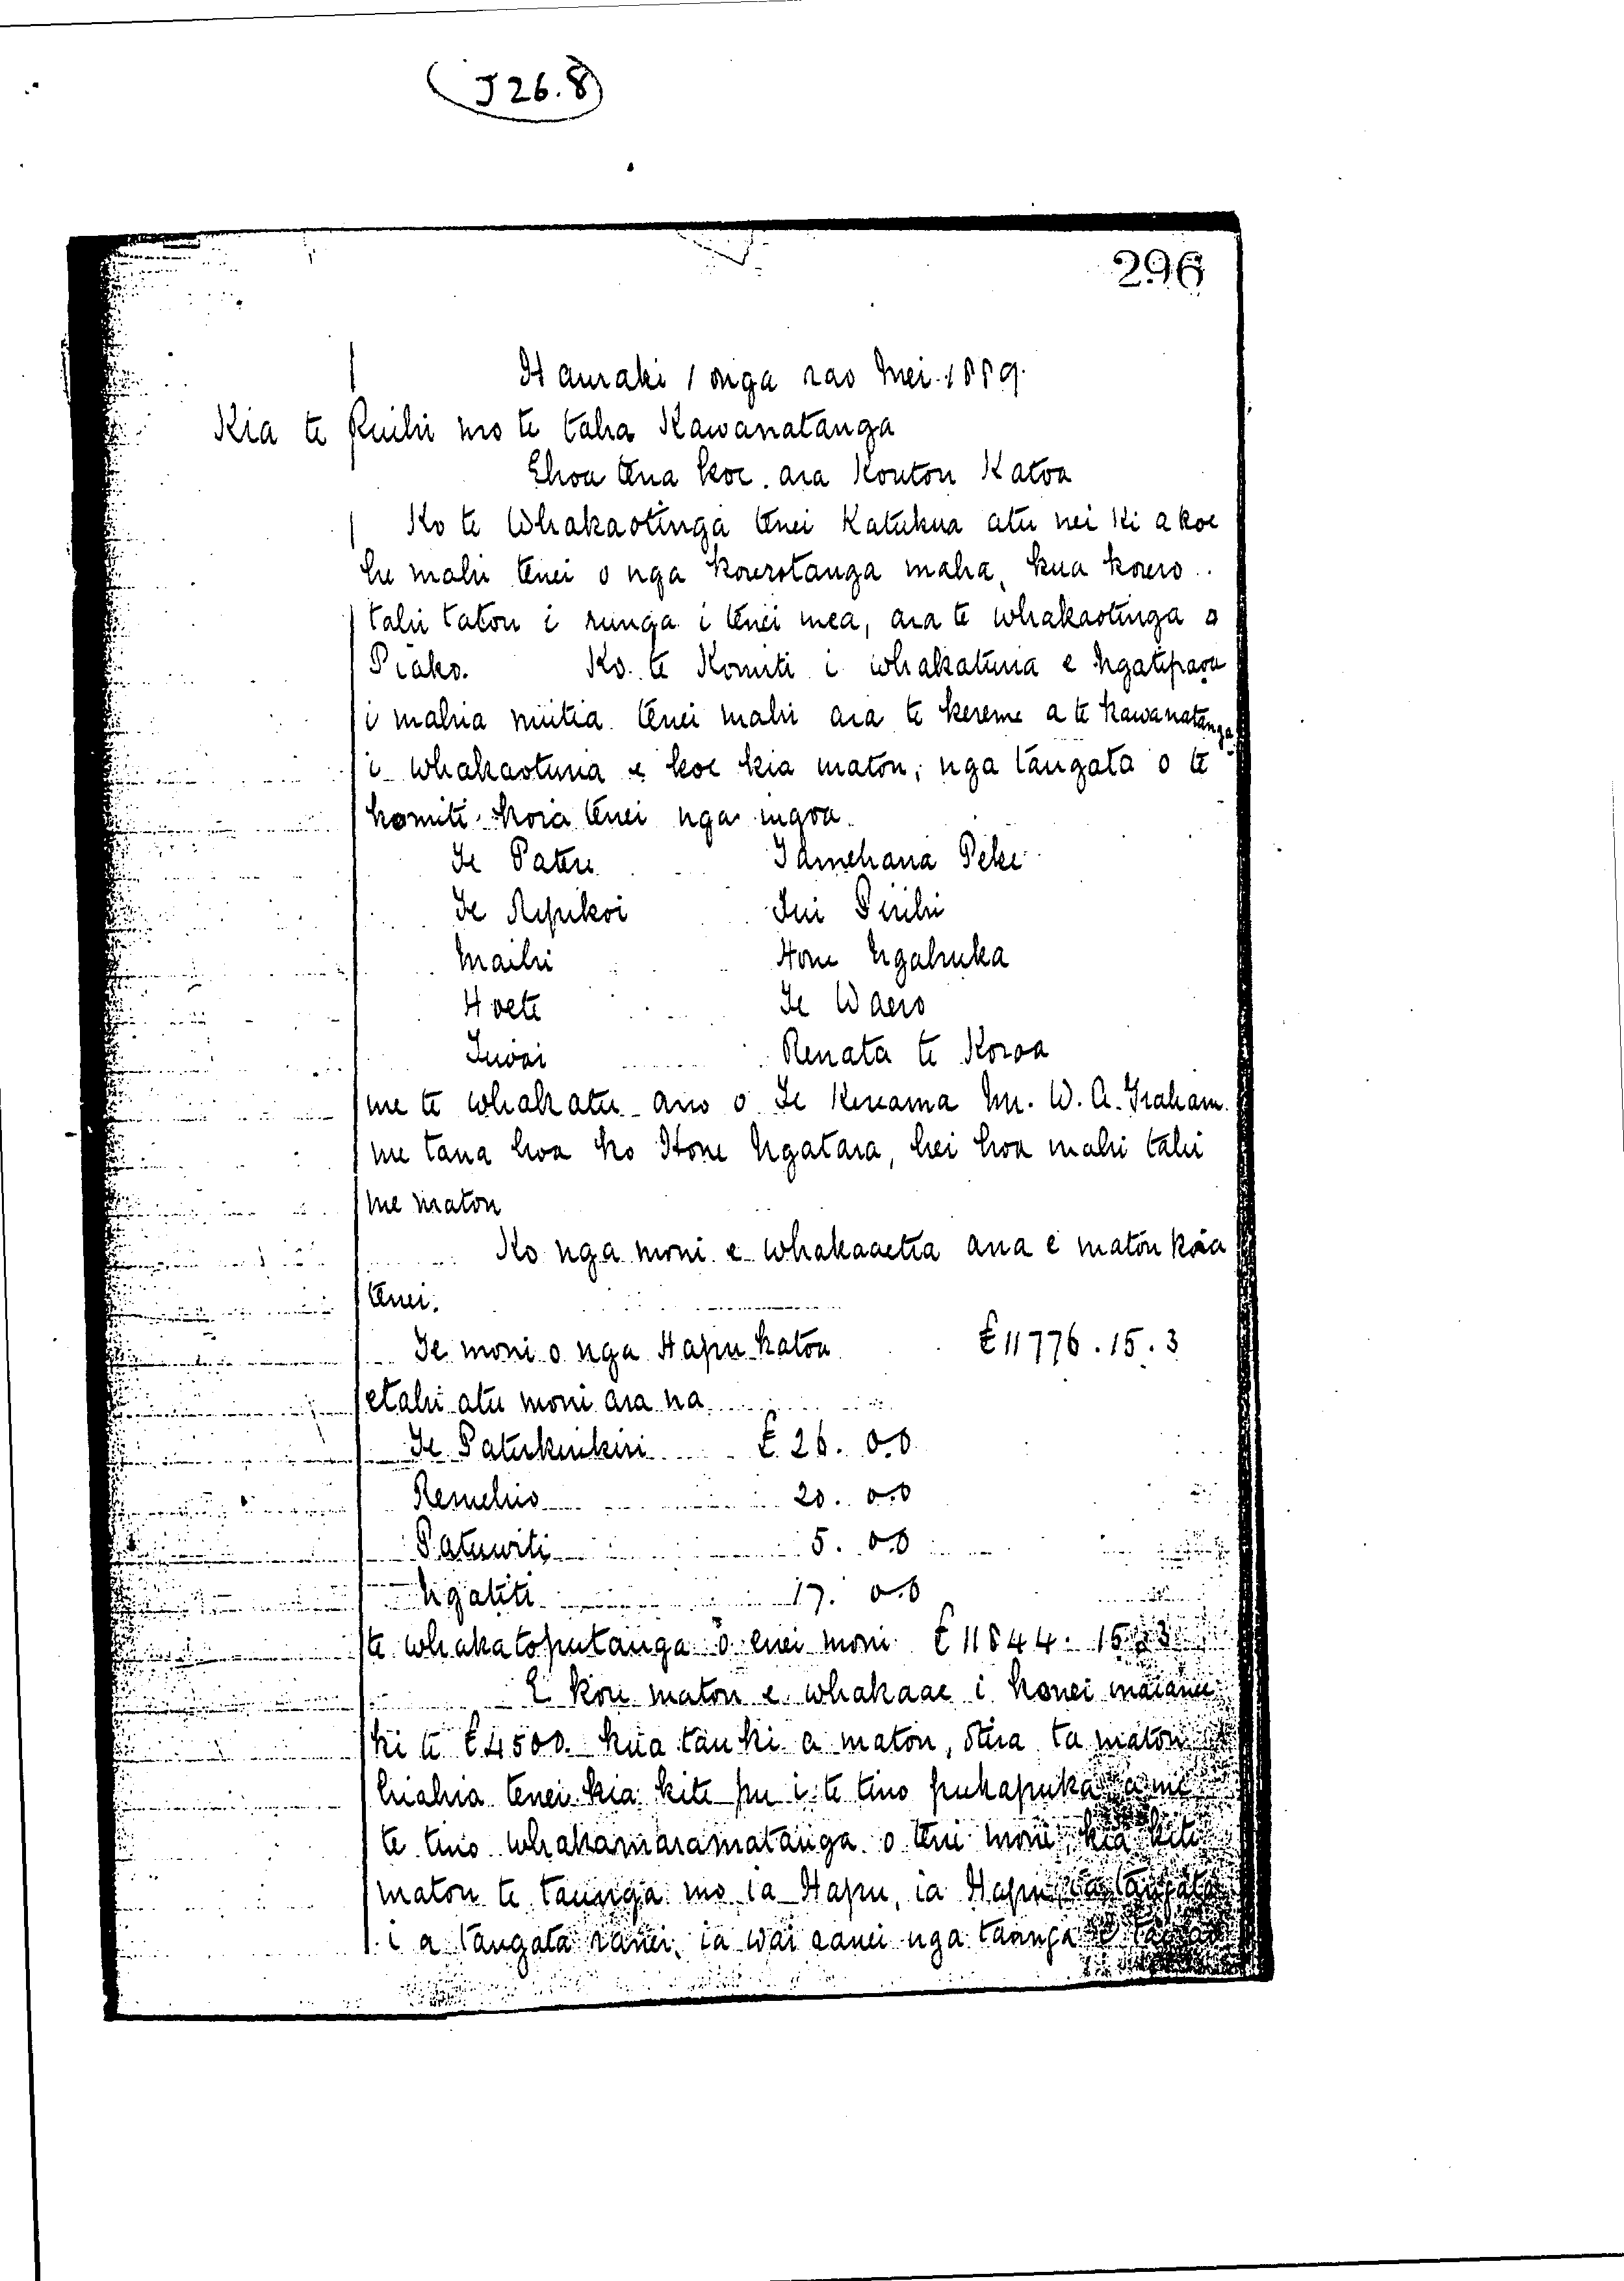 J 26.8
296
Hauraki 1 onga rao Mei 1889.
Kia te Ruihi mo te taha Kawanatanga
Ehoa tena koe. ara Koutou Katoa
Ko te Whakaotinga tenei Katukua atu nei ki a koe
he mahi tenei o nga korerotanga maha, kua korero..
tahi tatou i runga i tenei mea, ara te whakaotinga o
Piako. Ko te Komiti i whakaturia e Ngatipaoa
i mahia mutia tenei mahi ara te kereme a te Kawanatanga
i whakaoturia e koe kia matou, nga tangata o te
komiti koia tenei nga ingoa.
Te Patu Tamehana Peke
Te Ripikoi Tui Pirihi
Maihi Hone Ngahuka
Hoete Te Waero
Tuwai Renata te Koroa
me te whakatu ano o Te Kereama Mr. W. A. Graham.
me tana hoa ko Hone Ngatara, hei hoa mahi tahi
me matou
Ko nga moni e whakaaetia ana e matou koia
tenei.
Te moni o nga Hapu katoa £11776.15.3
etahi atu moni ara na
Te Patukirikiri £26.0.0
Remehio 20.0.0
Patuwiti 5.0.0
Ngatiti 17.0.0
te whakatoputanga o enei moni £11844.15.3
E kore matou e whakaae i konei maianei
ki te £4500. kua tau ki a matou, otira ta matou
hiahia tenei kia kite pu i te tino pukapuka a me
te tino whakamaramatanga o tenei moni, kia kite
matou te taunga mo ia Hapu, ia Hapu, ia tangata
i a tangata ranei, ia wai ranei nga taunga